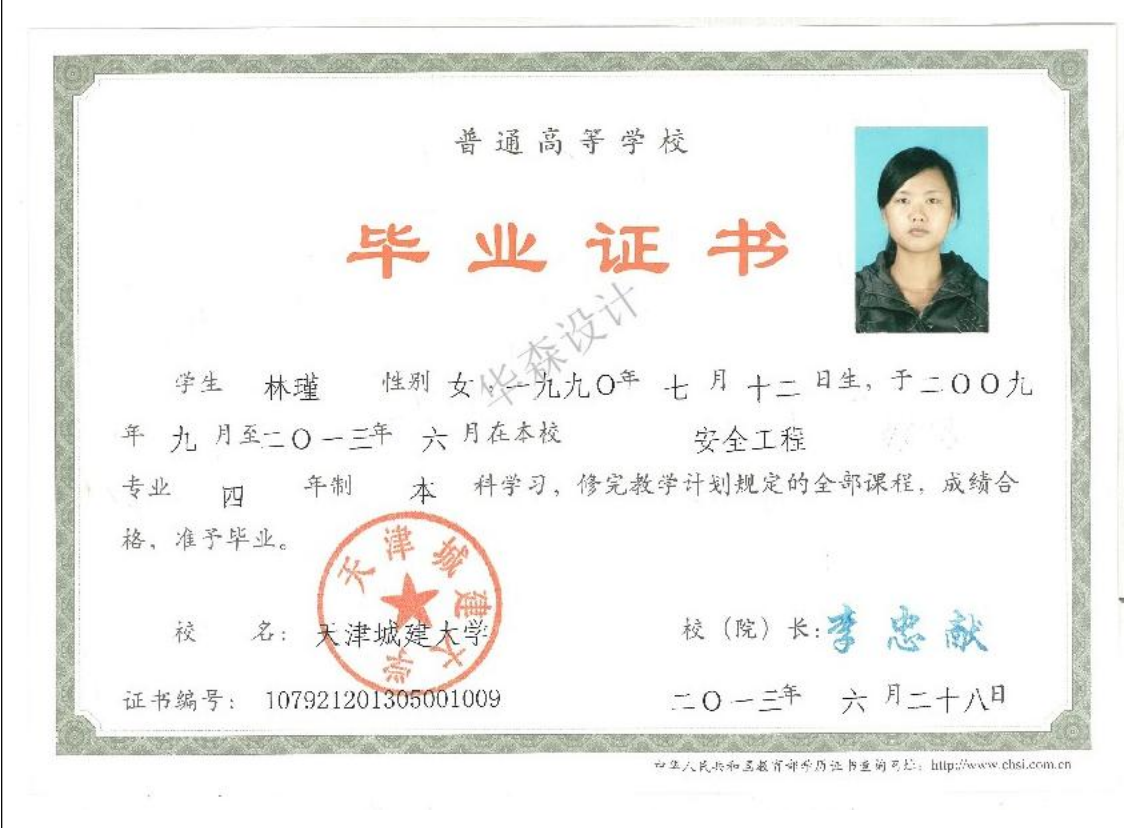 普通高等学校
毕业证书
华森设计
学生 林瑾 性别 女，一九九〇年 七 月 十二 日生，于二〇〇九
年 九 月至二〇一三年 六 月在本校 安全工程
专业 四 年制 本 科学习，修完教学计划规定的全部课程，成绩合
格，准予毕业。
天津城建大学
校 名：天津城建大学 校（院）长：李忠献
证书编号：107921201305001009 二〇一三年 六 月二十八日
中华人民共和国教育部学历证书查询网址：http://www.chsi.com.cn